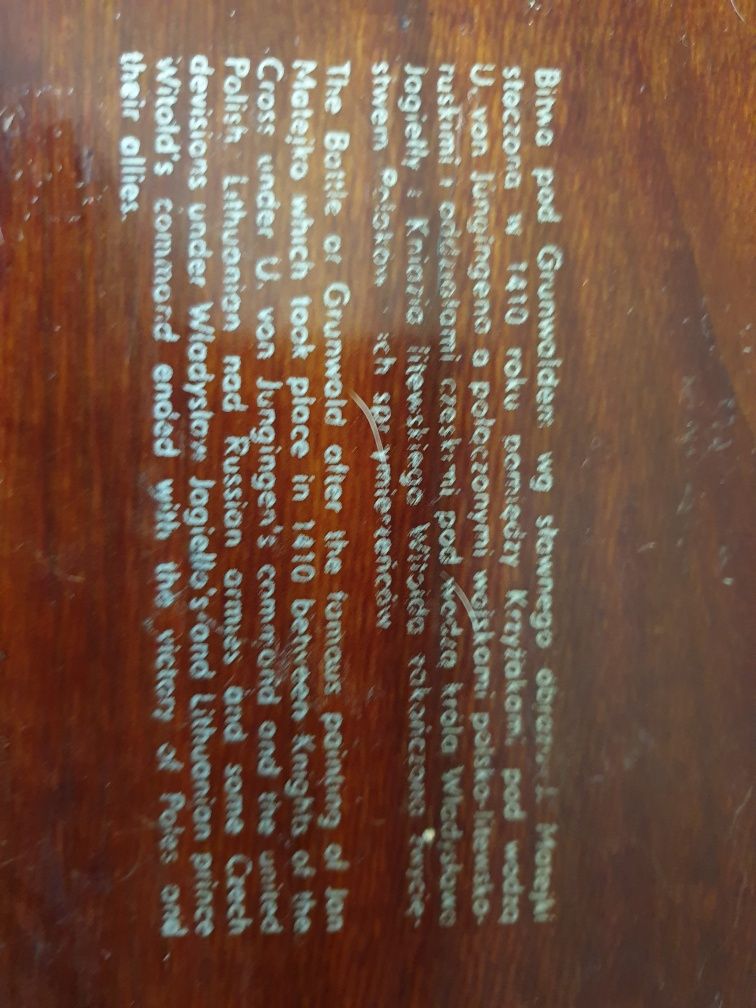 Bitwa pod Grunwaldem wg sławnego obrazu J. Matejki
stoczona w 1410 roku pomiędzy Krzyżakami pod wodzą
U. von Jungingena a połączonymi wojskami polsko-litewsko-
ruskimi i oddziałami czeskimi pod wodzą króla Władysława
Jagiełły i Kniazia litewskiego Witolda zakończona zwycię-
stwem Polaków i ich sprzymierzeńców
The Battle of Grunwald after the famous painting of Jan
Matejko which took place in 1410 between Knights of the
Cross under U. von Jungingen's command and the united
Polish, Lithuanian nad Russian armies and some Czech
devisions under Władysław Jagiello's and Lithuanian prince
Witold's command ended with the victory of Poles and
their allies.